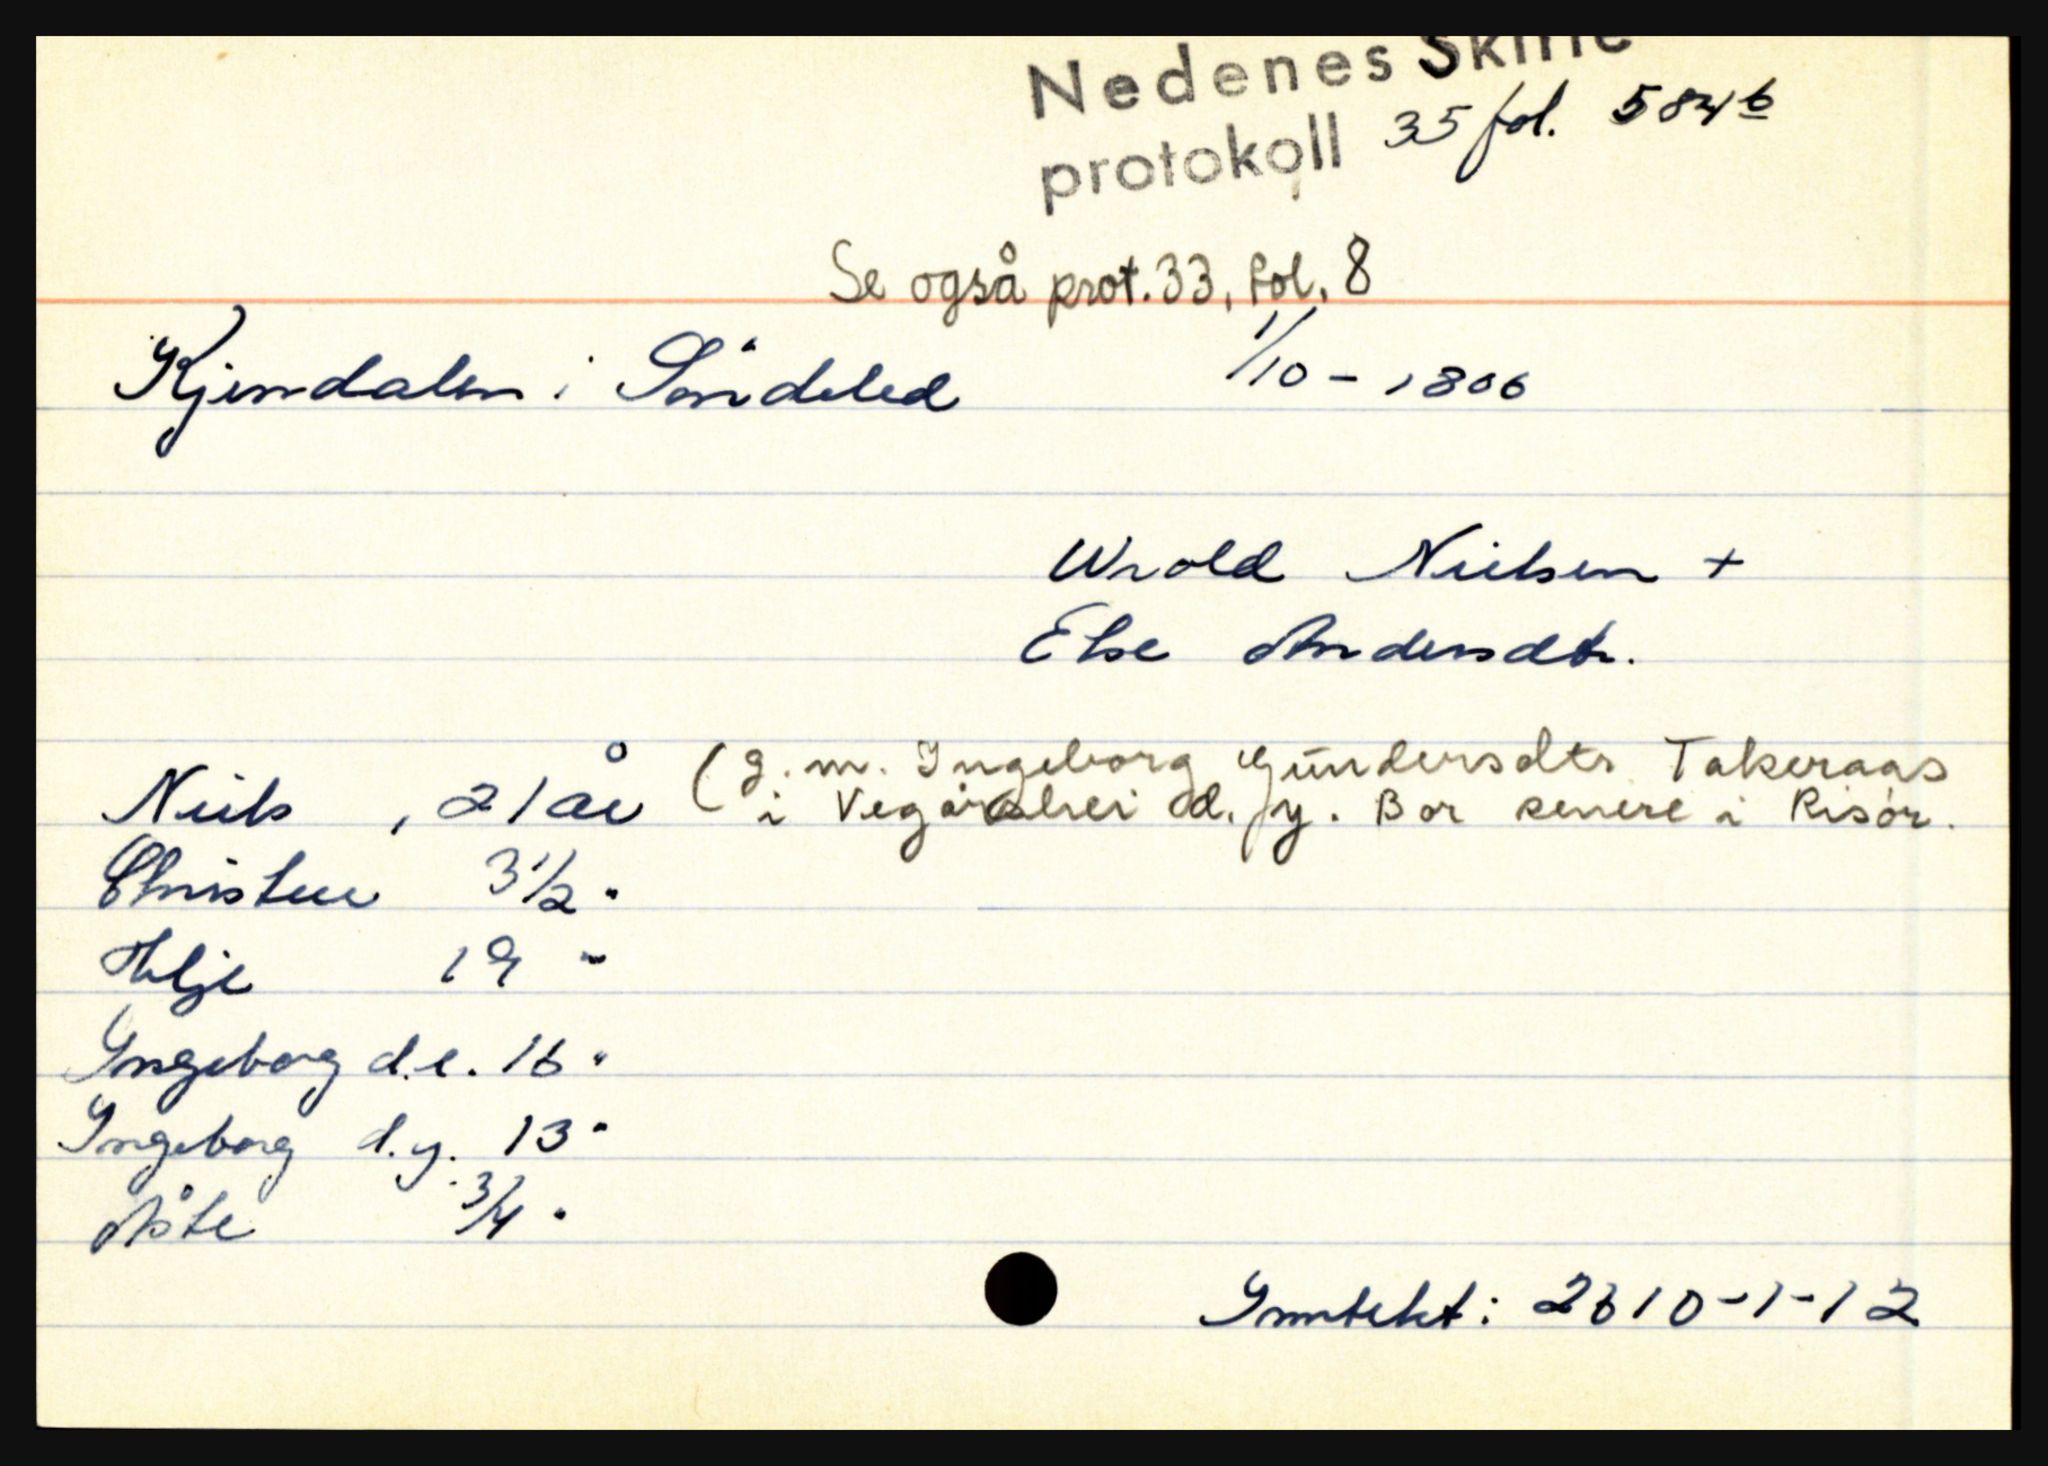 Nedenes Skifte
protokoll 35 fol. 584b
Se også prot. 33, fol. 8
Kjendalen i Söndeled 1/10 - 1806
Wrold Nielsen +
Else Andersdtr.
Niels , 21 år (g. m. Ingeborg Gundersdtr Takeraas
i Vegårshei d. y. Bor senere i Risør.
Christen 3 1/2 "
Helje 19 "
Ingeborg d.e. 16 "
Ingeborg d.y. 13 "
Åste 3/4 "
Inntekt: 2610-1-12